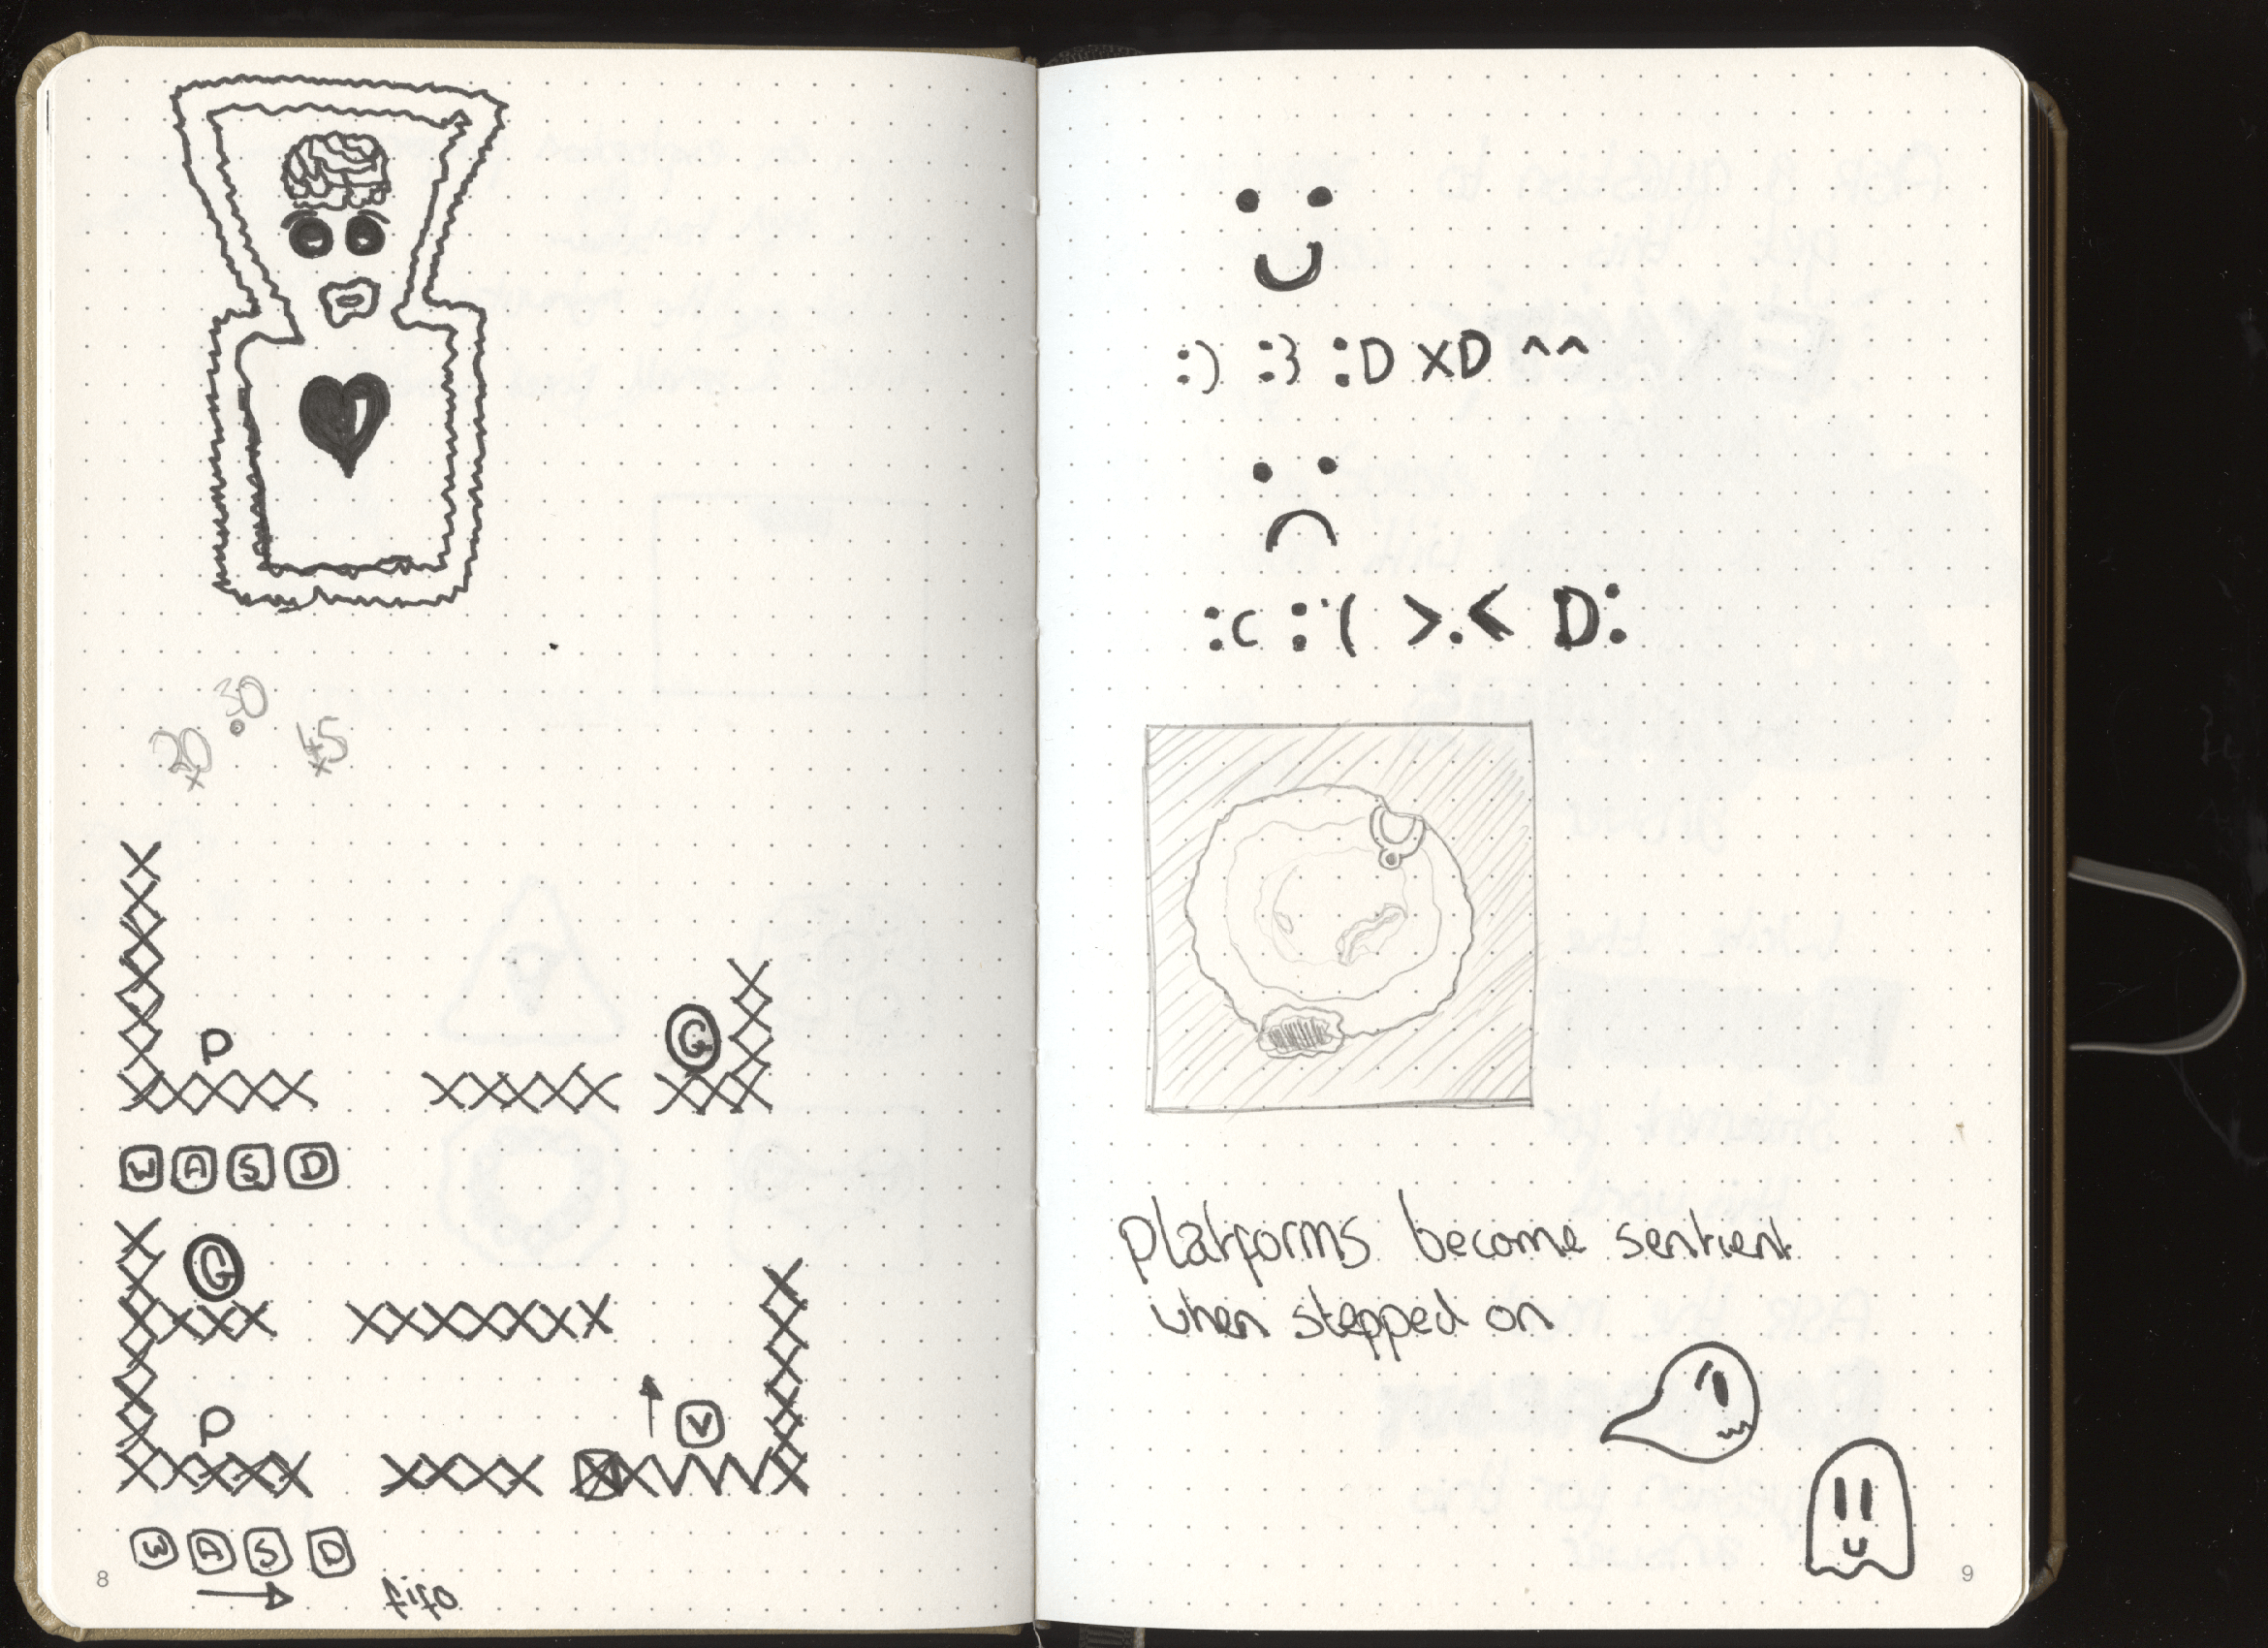 30
20
45
P
G
W A S D
G
P
V
W A S D
fifo
8
:) :3 :D XD ^^
:c :'( >.< D:
platforms become sentient
when stepped on
9